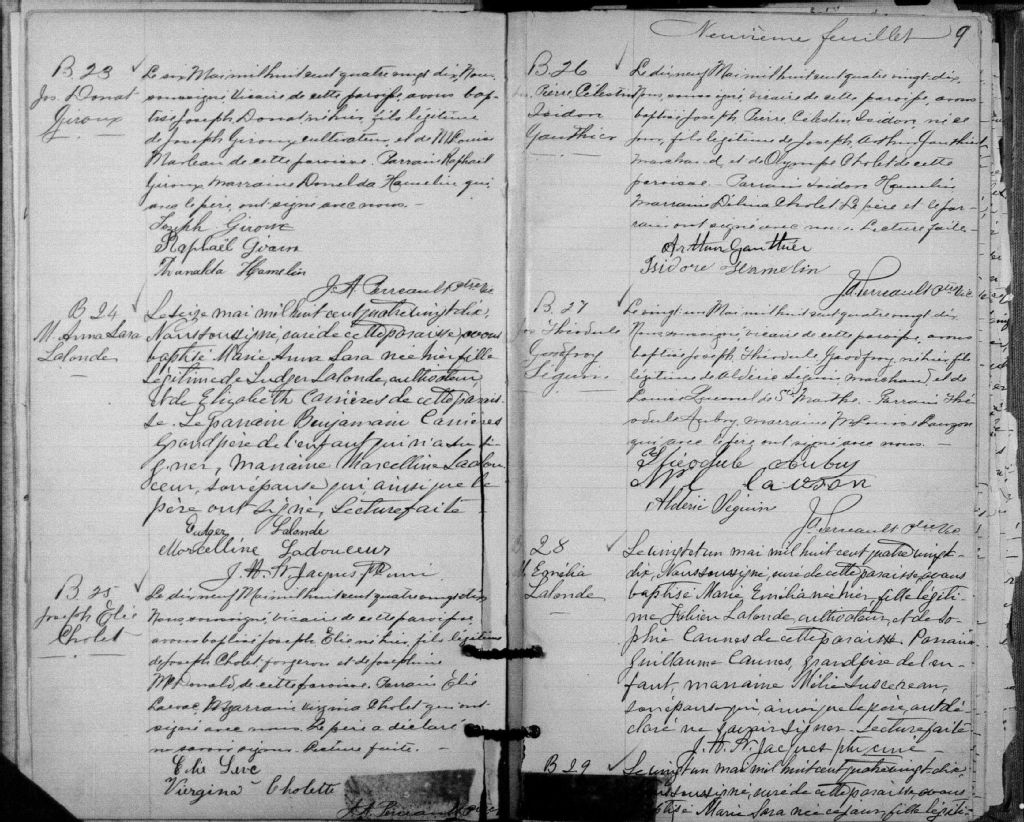 B. 23
Jos. Donat
Giroux
Le six Mai mil huit cent quatre vingt dix, Nous
soussigné, vicaire de cette paroisse, avons bap-
tisé Joseph Donat, né hier, fils légitime
de Joseph Giroux cultivateur, et de M. Louise
Marleau de cette paroisse. Parrain Raphaël
Giroux marraine Donelda Hamelin qui,
avec le père, ont signé avec nous. -
Joseph Giroux
Raphaël Giroux
Hamelin
J. A. Perreault ptre Vic
B 24
M. Anna Lara
Lalonde
Le seize mai mil huit cent quatre vingt dix,
Nous soussigné, curé de cette paroisse, avons
baptisé Marie Anna Lara née hier fille
légitime de Ludger Lalonde, cultivateur
et de Elizabeth Carrières de cette parois-
se. Le parrain Benjamain Carrières
grandpère de l'enfant qui n'a su si-
gner, marraine Marcelline Ladou-
ceur, son épouse qui ainsi que le
père ont signé, Lecture faite
Ludger Lalonde
Marcelline Ladouceur
J. A. St Jacques Ptre curé
B. 25
Joseph Elie
Cholet
Le dix neuf Mai mil huit cent quatre vingt dix,
Nous, soussigné, vicaire de cette paroisse,
avons baptisé Joseph Elie né hier, fils légitime
de Joseph Cholet forgeron et de Joséphine
McDonald, de cette paroisse. Parrain Elie
Marraine Virginie Cholet qui ont
signé avec nous. Le père a déclaré
ne savoir signer. Lecture faite. -
Elie
Viergina Cholette
Neuvième feuillet 9
B. 26
Pierre Célestin
Isidon
Gauthier
Le dix neuf Mai mil huit cent quatre vingt-dix,
Nous, soussigné, vicaire de cette paroisse, avons
baptisé Joseph Pierre Célestin Isidon, né ce
jour, fils légitime de Joseph Arthur Gauthier
marchand, et de Olympe Cholet de cette
paroisse. - Parrain Isidore Hamelin
Marraine Délina Cholet. Le père et le par-
rain ont signé avec nous. Lecture faite. -
Arthur Gauthier
Isidore Hamelin
J A Perreault Ptre Vic
B. 27
Jos Théodule
Godfroy
Séguin
Le vingt un Mai mil huit cent quatre vingt dix,
Nous soussigné, vicaire de cette paroisse, avons
baptisé Joseph Théodule Godfroy, né hier, fils
légitime de Aldéric Séguin, marchand, et de
de Ste Marthe. - Parrain Thé-
odule Aubry, marraine M. Louise Lauzon
qui, avec le père ont signé avec nous. -
Théodule Aubry
Lauzon
Aldéric Séguin
J A Perreault Ptre Vic
28
M. Emélia
Lalonde
Le vingt et un mai mil huit cent quatre vingt-
dix, Nous soussigné, curé de cette paroisse, avons
baptisé Marie Emélia née hier, fille légiti-
me Julien Lalonde, cultivateur, et de So-
phie Caunes de cette paroisse. Parrain
Guillaume Caunes, grandpère de l'en-
fant, marraine Mélie
son épouse qui ainsi que le père, ont dé-
claré ne savoir signer. Lecture faite
J. A. St Jacques ptre curé
B 29
Le vingt un mai mil huit cent quatre vingt dix,
Nous soussigné, curé de cette paroisse, avons
baptisé Marie Lara née ce jour, fille légiti-